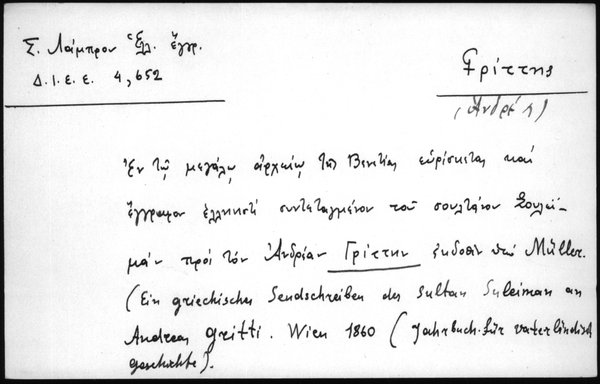 Σ. Λάμπρου Ἑλλ. ἔγγρ.
Δ.Ι.Ε.Ε. 4, 652
Γρίττης
(Ἀνδρέας)
Ἐν τῷ μεγάλῳ ἀρχείῳ τῆς Βενετίας εὑρίσκεται καὶ
ἔγγραφον ἑλληνιστὶ συντεταγμένον τοῦ σουλτάνου Σουλεϊ-
μὰν πρὸς τὸν Ἀνδρέαν Γρίττην ἐκδοθὲν ὑπὸ Müller.
(Ein griechisches Sendschreiben des Sultan Suleiman an
Andreas Gritti. Wien 1860 (Jahrbuch für vaterländisch
geschichte).